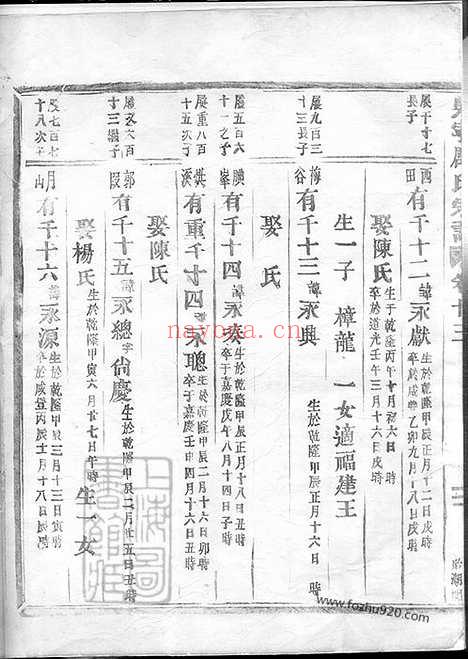 西田
有千十二諱永獻
生於乾隆甲辰正月十二日戌時
卒於咸豐乙卯九月十八日戌時
娶陳氏
生于乾隆丙午十月初六日 時
卒於道光壬午三月十六日戌時
生一子 樟龍 一女適福建王
展九百三
十三長子
梅谷
有千十三諱永典
生於乾隆甲辰正月十六日 時
娶 氏
展五百六
十一之子
有千十四諱永奏
生於乾隆甲辰正月十八日 時
卒于嘉慶戊午八月十四日子時
展重八百
十五次子
有重千十四諱永聰
生於乾隆甲辰二月十六日卯時
卒于嘉慶壬申四月十六日丑時
娶陳氏
六百
十三繼子
郭段
有千十五諱永總字尙慶
生於乾隆甲辰二月廿五日丑時
娶楊氏
生於乾隆甲寅六月廿七日午時
生一女
展七百七
十八次子
月山
有千十六諱永源
生於乾隆甲辰三月十三日寅時
卒於咸豐丙辰十一月十八日辰時
卷十三
上海圖書館藏
nayona.cn
www.fozhu920.com